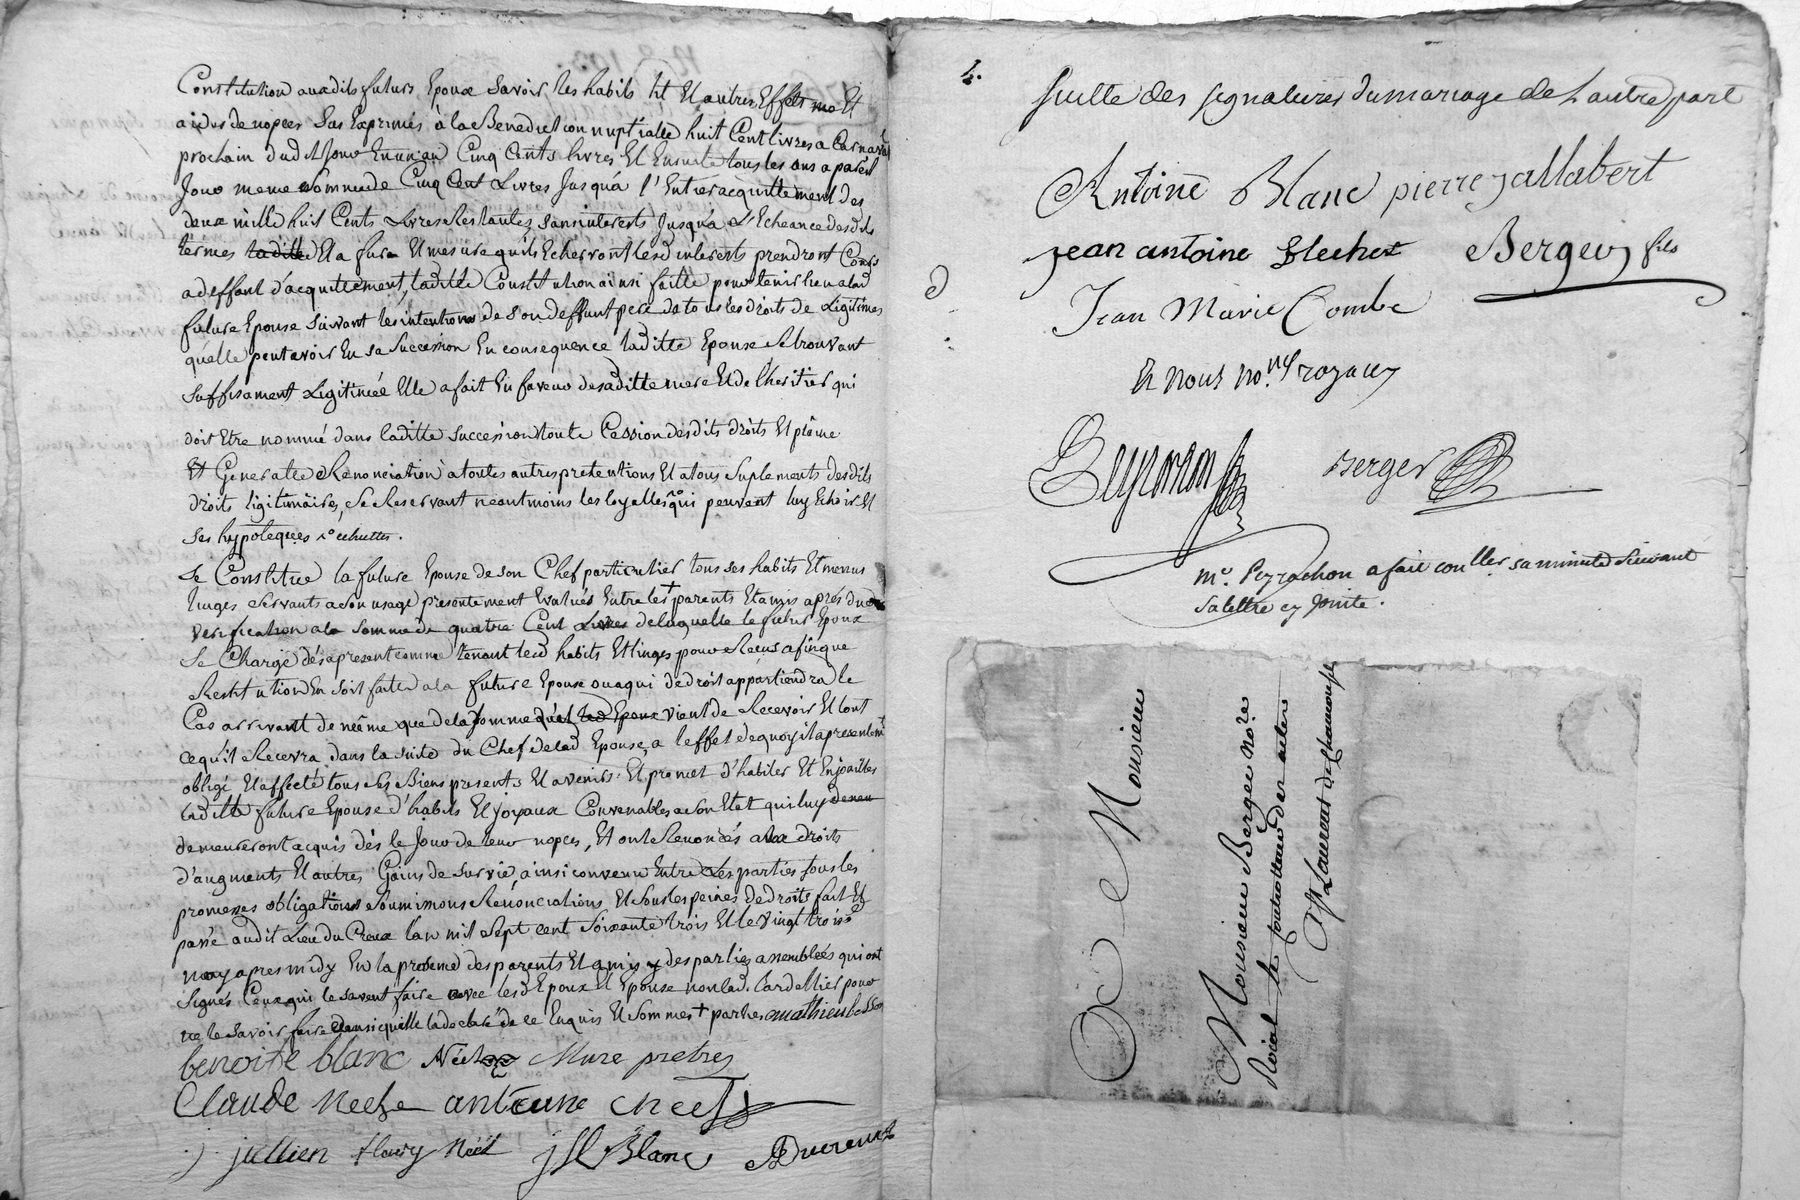 Constitution auxdits futurs Epoux Savoir les habits lit Et autres Effets me Et
aides de nopces Sus Exprimés à la Benediction nuptialle huit Cent livres a Carnaval
prochain dudit Jour En un an Cinq Cents livres Et Ensuite tous les ans a pareil
Jour meme Somme de Cinq Cent Livres Jusqu'a l'Entier acquittement des
deux mille huit Cents Livres Restantes sans interests Jusqu'a L'Echeance desdits
termes ladite Et a fur Et mesure quils Echerront lesd interests prendront Cours
a deffaut d'acquittement, laditte Constitution ainsi faitte pour tenir lieu a lad
future Epouse Suivant les intentions de Son deffunt pere de tous les droits de Légitimes
quelle peut avoir En sa Succession En consequence laditte Epouse Se trouvant
Suffisament Légitimée Elle a fait En faveur de saditte mere Et de l'heritier qui
doit Etre nommé dans laditte Succession toute Cession desdits droits Et pleine
Et Generalle Renonciation a toutes autres pretentions Et a tous Suplements desdits
droits légitimaires, Se Reservant néantmoins les loyalles qui peuvent luy Echoir Et
Ses hypoteques
Se Constitue la future Epouse de son Chef particulier tous ses habits Et menus
linges Servants a Son usage presentement Evalués Entre les + parents Et amis apres due
verification a la Somme de quatre Cent Livres de laquelle le futur Epoux
Se Charge dés a present comme tenant lesd habits Et linges pour Recus afin que
Restitution En Soit faitte a la future Epouse ou a qui de droit appartiendra le
Cas arrivant de même que de la Somme quel led Epoux vient de Recevoir Et tout
ce qu'il Recevra dans la suite du Chef de lad Epouse, a l'effet de quoy il a presentemt
obligé Et affecté tous Ses Biens presents Et avenirs. Et promet d'habiller Et Enjoailler
laditte future Epouse d'habits Et joyaux Convenables a Son Etat qui luy demeu
demeureront acquis dés le Jour de leur nopces, Et ont Renoncés aux droits
d'augments Et autres Gains de Survie, ainsi convenu Entre Les parties sous les
promesses obligations Soumissions Renonciations Et Sous les peines de Droits fait Et
passé audit Lieu du Creux l'an mil Sept cent Soixante trois Et le vingt trois
may apres midy En la presence des parents Et amis des parties assemblées qui ont
Signés Ceux qui le Savent faire avec lesd Epoux Et Epouse non lad. Cardellier pour
ne le Savoir faire ainsi quelle la declaré de ce Enquis Et Sommés + par les mathieu
benoite blanc Néel Mure pretres
Claude Neel antoine Neel
jullien fleury Néel Blanc
4.
Suitte des Signatures du mariage de L'autre part
Antoine Blanc pierre jallabert
Jean antoine Berger fils
Jean Marie Combe
Et Nous no.res royaux
Peyrachon Berger
Mr. Peyrachon a fait couller sa minutte Suivant
Sa lettre cy Jointe.
A Monsieur
Monsieur Berger no.re
Roial
St Laurent de Chamousset